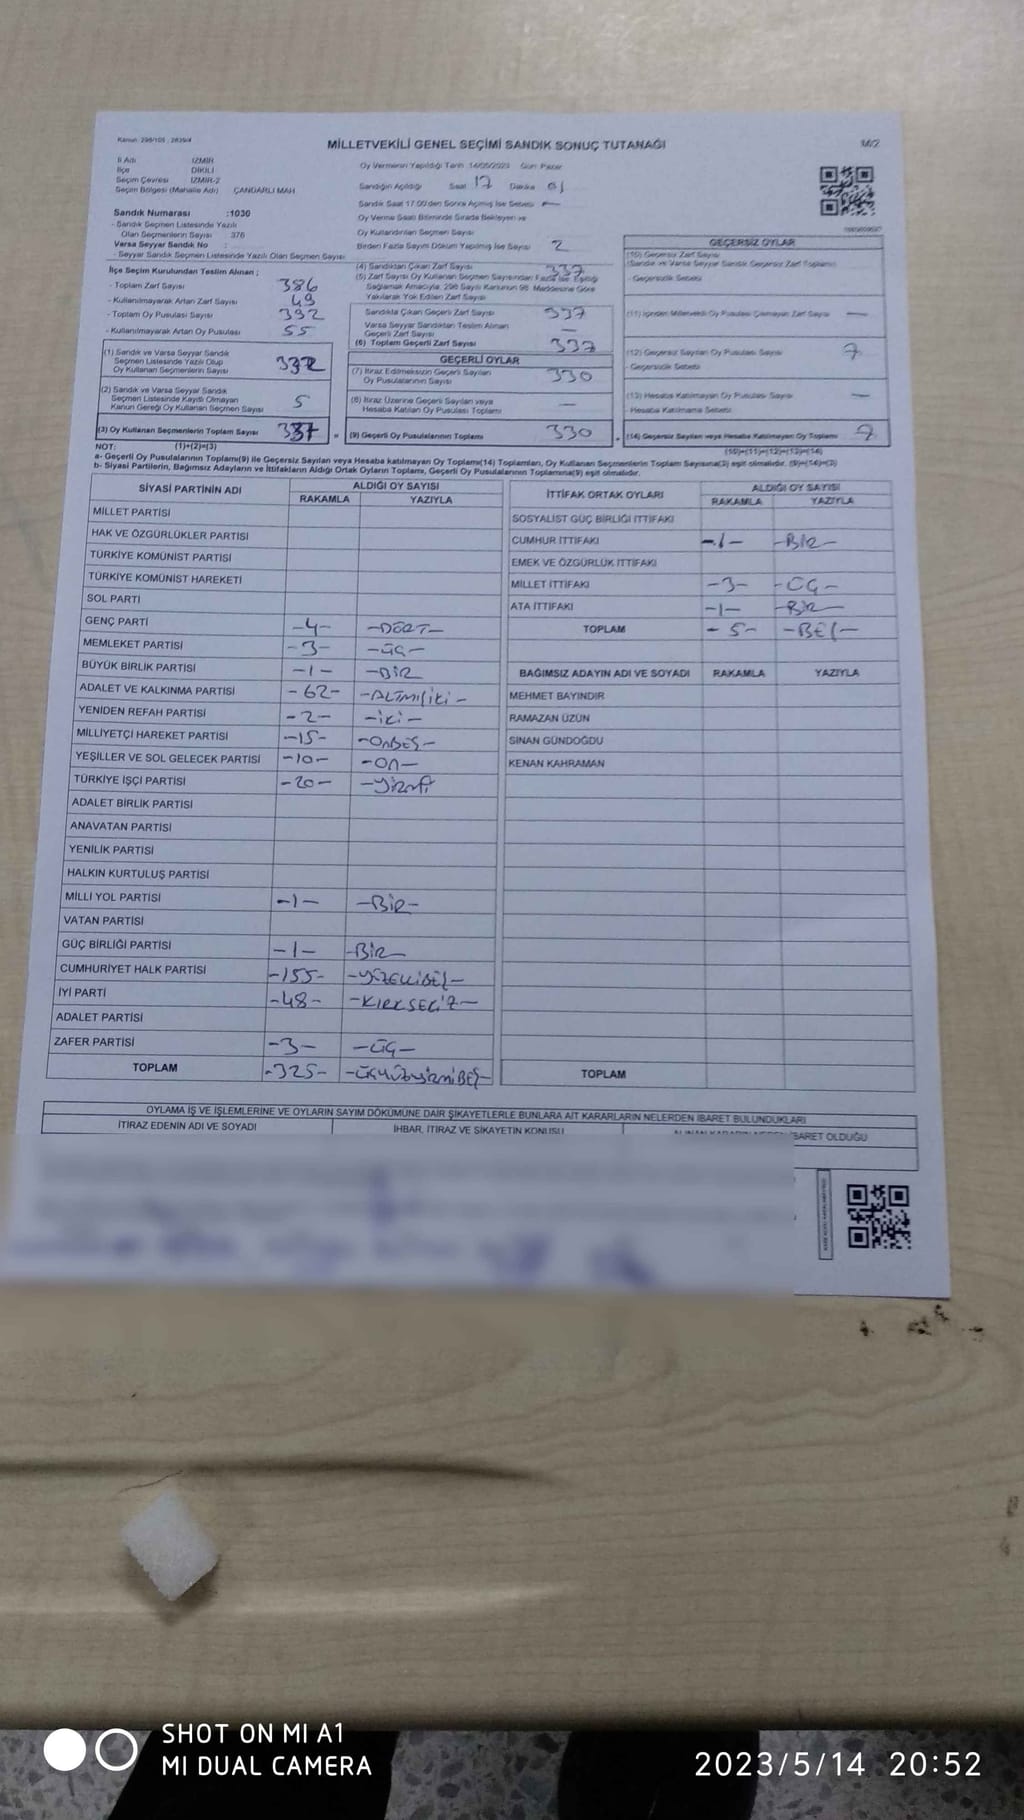 Kanun: 298/105 , 2839/4
MİLLETVEKİLİ GENEL SEÇİMİ SANDIK SONUÇ TUTANAĞI
İl Adı İZMİR
İlçe DİKİLİ
Seçim Çevresi İZMİR-2
Seçim Bölgesi (Mahalle Adı) ÇANDARLI MAH
Sandık Numarası :1030
- Sandık Seçmen Listesinde Yazılı
Olan Seçmenlerin Sayısı 376
Varsa Seyyar Sandık No :
- Seyyar Sandık Seçmen Listesinde Yazılı Olan Seçmen Sayısı:
Oy Vermenin Yapıldığı Tarih :14/05/2023 Gün: Pazar
Sandığın Açıldığı Saat 17 Dakika 01
Sandık Saat 17:00'den Sonra Açılmış İse Sebebi —
Oy Verme Saati Bitiminde Sırada Bekleyen ve
Oy Kullandırılan Seçmen Sayısı
Birden Fazla Sayım Döküm Yapılmış İse Sayısı 2
İlçe Seçim Kurulundan Teslim Alınan ;
- Toplam Zarf Sayısı 386
- Kullanılmayarak Artan Zarf Sayısı 49
- Toplam Oy Pusulası Sayısı 392
- Kullanılmayarak Artan Oy Pusulası 55
(1) Sandık ve Varsa Seyyar Sandık
Seçmen Listesinde Yazılı Olup
Oy Kullanan Seçmenlerin Sayısı 332
(2) Sandık ve Varsa Seyyar Sandık
Seçmen Listesinde Kayıtlı Olmayan
Kanun Gereği Oy Kullanan Seçmen Sayısı 5
(3) Oy Kullanan Seçmenlerin Toplam Sayısı 337
(4) Sandıktan Çıkan Zarf Sayısı 337
(5) Zarf Sayısı Oy Kullanan Seçmen Sayısından Fazla İse Eşitliği
Sağlamak Amacıyla, 298 Sayılı Kanunun 98. Maddesine Göre
Yakılarak Yok Edilen Zarf Sayısı
Sandıkta Çıkan Geçerli Zarf Sayısı 337
Varsa Seyyar Sandıktan Teslim Alınan
Geçerli Zarf Sayısı —
(6) Toplam Geçerli Zarf Sayısı 337
GEÇERLİ OYLAR
(7) İtiraz Edilmeksizin Geçerli Sayılan
Oy Pusulalarının Sayısı 330
(8) İtiraz Üzerine Geçerli Sayılan veya
Hesaba Katılan Oy Pusulası Toplamı —
= (9) Geçerli Oy Pusulalarının Toplamı 330
GEÇERSİZ OYLAR
(10) Geçersiz Zarf Sayısı
(Sandık ve Varsa Seyyar Sandık Geçersiz Zarf Toplamı)
- Geçersizlik Sebebi
(11) İçinden Milletvekili Oy Pusulası Çıkmayan Zarf Sayısı —
(12) Geçersiz Sayılan Oy Pusulası Sayısı 7
- Geçersizlik Sebebi
(13) Hesaba Katılmayan Oy Pusulası Sayısı —
- Hesaba Katılmama Sebebi
+ (14) Geçersiz Sayılan veya Hesaba Katılmayan Oy Toplamı 7
NOT: (1)+(2)=(3) (10)+(11)+(12)+(13)=(14)
a- Geçerli Oy Pusulasının Toplamı(9) ile Geçersiz Sayılan veya Hesaba katılmayan Oy Toplamı(14) Toplamları, Oy Kullanan Seçmenlerin Toplam Sayısına(3) eşit olmalıdır. (9)+(14)=(3)
b- Siyasi Partilerin, Bağımsız Adayların ve İttifakların Aldığı Ortak Oyların Toplamı, Geçerli Oy Pusulalarının Toplamına(9) eşit olmalıdır.
SİYASİ PARTİNİN ADI ALDIĞI OY SAYISI
RAKAMLA YAZIYLA
MİLLET PARTİSİ
HAK VE ÖZGÜRLÜKLER PARTİSİ
TÜRKİYE KOMÜNİST PARTİSİ
TÜRKİYE KOMÜNİST HAREKETİ
SOL PARTİ
GENÇ PARTİ -4- -DÖRT-
MEMLEKET PARTİSİ -3- -ÜÇ-
BÜYÜK BİRLİK PARTİSİ -1- -BİR
ADALET VE KALKINMA PARTİSİ -62- -ALTMIŞİKİ-
YENİDEN REFAH PARTİSİ -2- -İKİ-
MİLLİYETÇİ HAREKET PARTİSİ -15- -ONBEŞ-
YEŞİLLER VE SOL GELECEK PARTİSİ -10- -ON-
TÜRKİYE İŞÇİ PARTİSİ -20- -YİRMİ
ADALET BİRLİK PARTİSİ
ANAVATAN PARTİSİ
YENİLİK PARTİSİ
HALKIN KURTULUŞ PARTİSİ
MİLLİ YOL PARTİSİ -1- -BİR-
VATAN PARTİSİ
GÜÇ BİRLİĞİ PARTİSİ -1- -BİR-
CUMHURİYET HALK PARTİSİ -155- -YÜZELLİBEŞ-
İYİ PARTİ -48- -KIRKSEKİZ-
ADALET PARTİSİ
ZAFER PARTİSİ -3- -ÜÇ-
TOPLAM -325- -ÜÇYÜZYİRMİBEŞ-
İTTİFAK ORTAK OYLARI ALDIĞI OY SAYISI
RAKAMLA YAZIYLA
SOSYALİST GÜÇ BİRLİĞİ İTTİFAKI
CUMHUR İTTİFAKI -1- -BİR-
EMEK VE ÖZGÜRLÜK İTTİFAKI
MİLLET İTTİFAKI -3- -ÜÇ-
ATA İTTİFAKI -1- -BİR-
TOPLAM -5- -BEŞ-
BAĞIMSIZ ADAYIN ADI VE SOYADI RAKAMLA YAZIYLA
MEHMET BAYINDIR
RAMAZAN ÜZÜN
SİNAN GÜNDOĞDU
KENAN KAHRAMAN
TOPLAM
OYLAMA İŞ VE İŞLEMLERİNE VE OYLARIN SAYIM DÖKÜMÜNE DAİR ŞİKAYETLERLE BUNLARA AİT KARARLARIN NELERDEN İBARET BULUNDUKLARI
İTİRAZ EDENİN ADI VE SOYADI İHBAR, İTİRAZ VE ŞİKAYETİN KONUSU
SHOT ON MI A1
MI DUAL CAMERA
2023/5/14 20:52